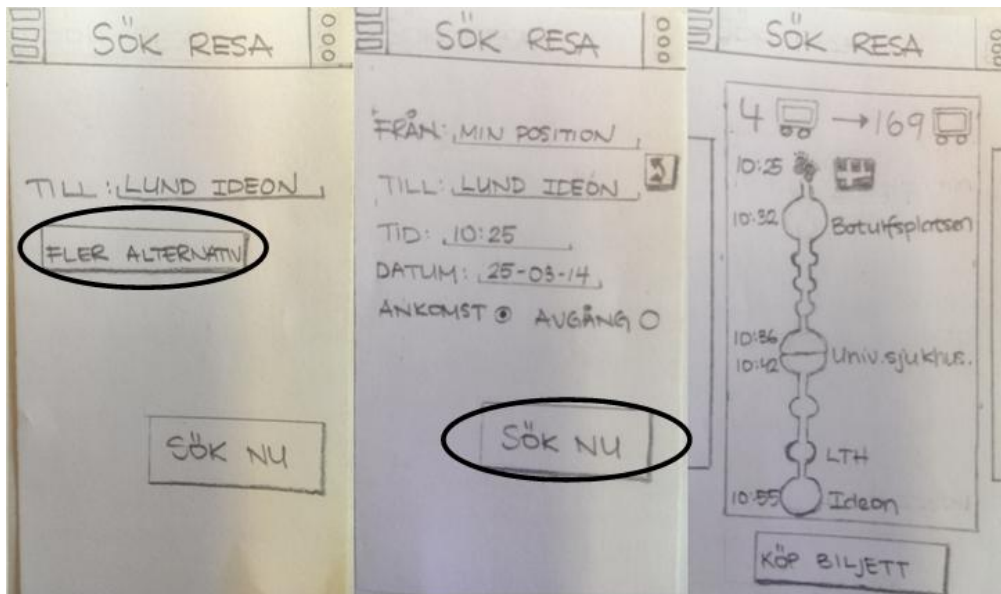 SÖK RESA
TILL: LUND IDEON
FLER ALTERNATIV
SÖK NU
SÖK RESA
FRÅN: MIN POSITION
TILL: LUND IDEON
TID: 10:25
DATUM: 25-03-14
ANKOMST AVGÅNG
SÖK NU
SÖK RESA
4 → 169
10:25
10:32 Botulfsplatsen
10:36
10:42 Univ.sjukhus.
LTH
10:55 Ideon
KÖP BILJETT